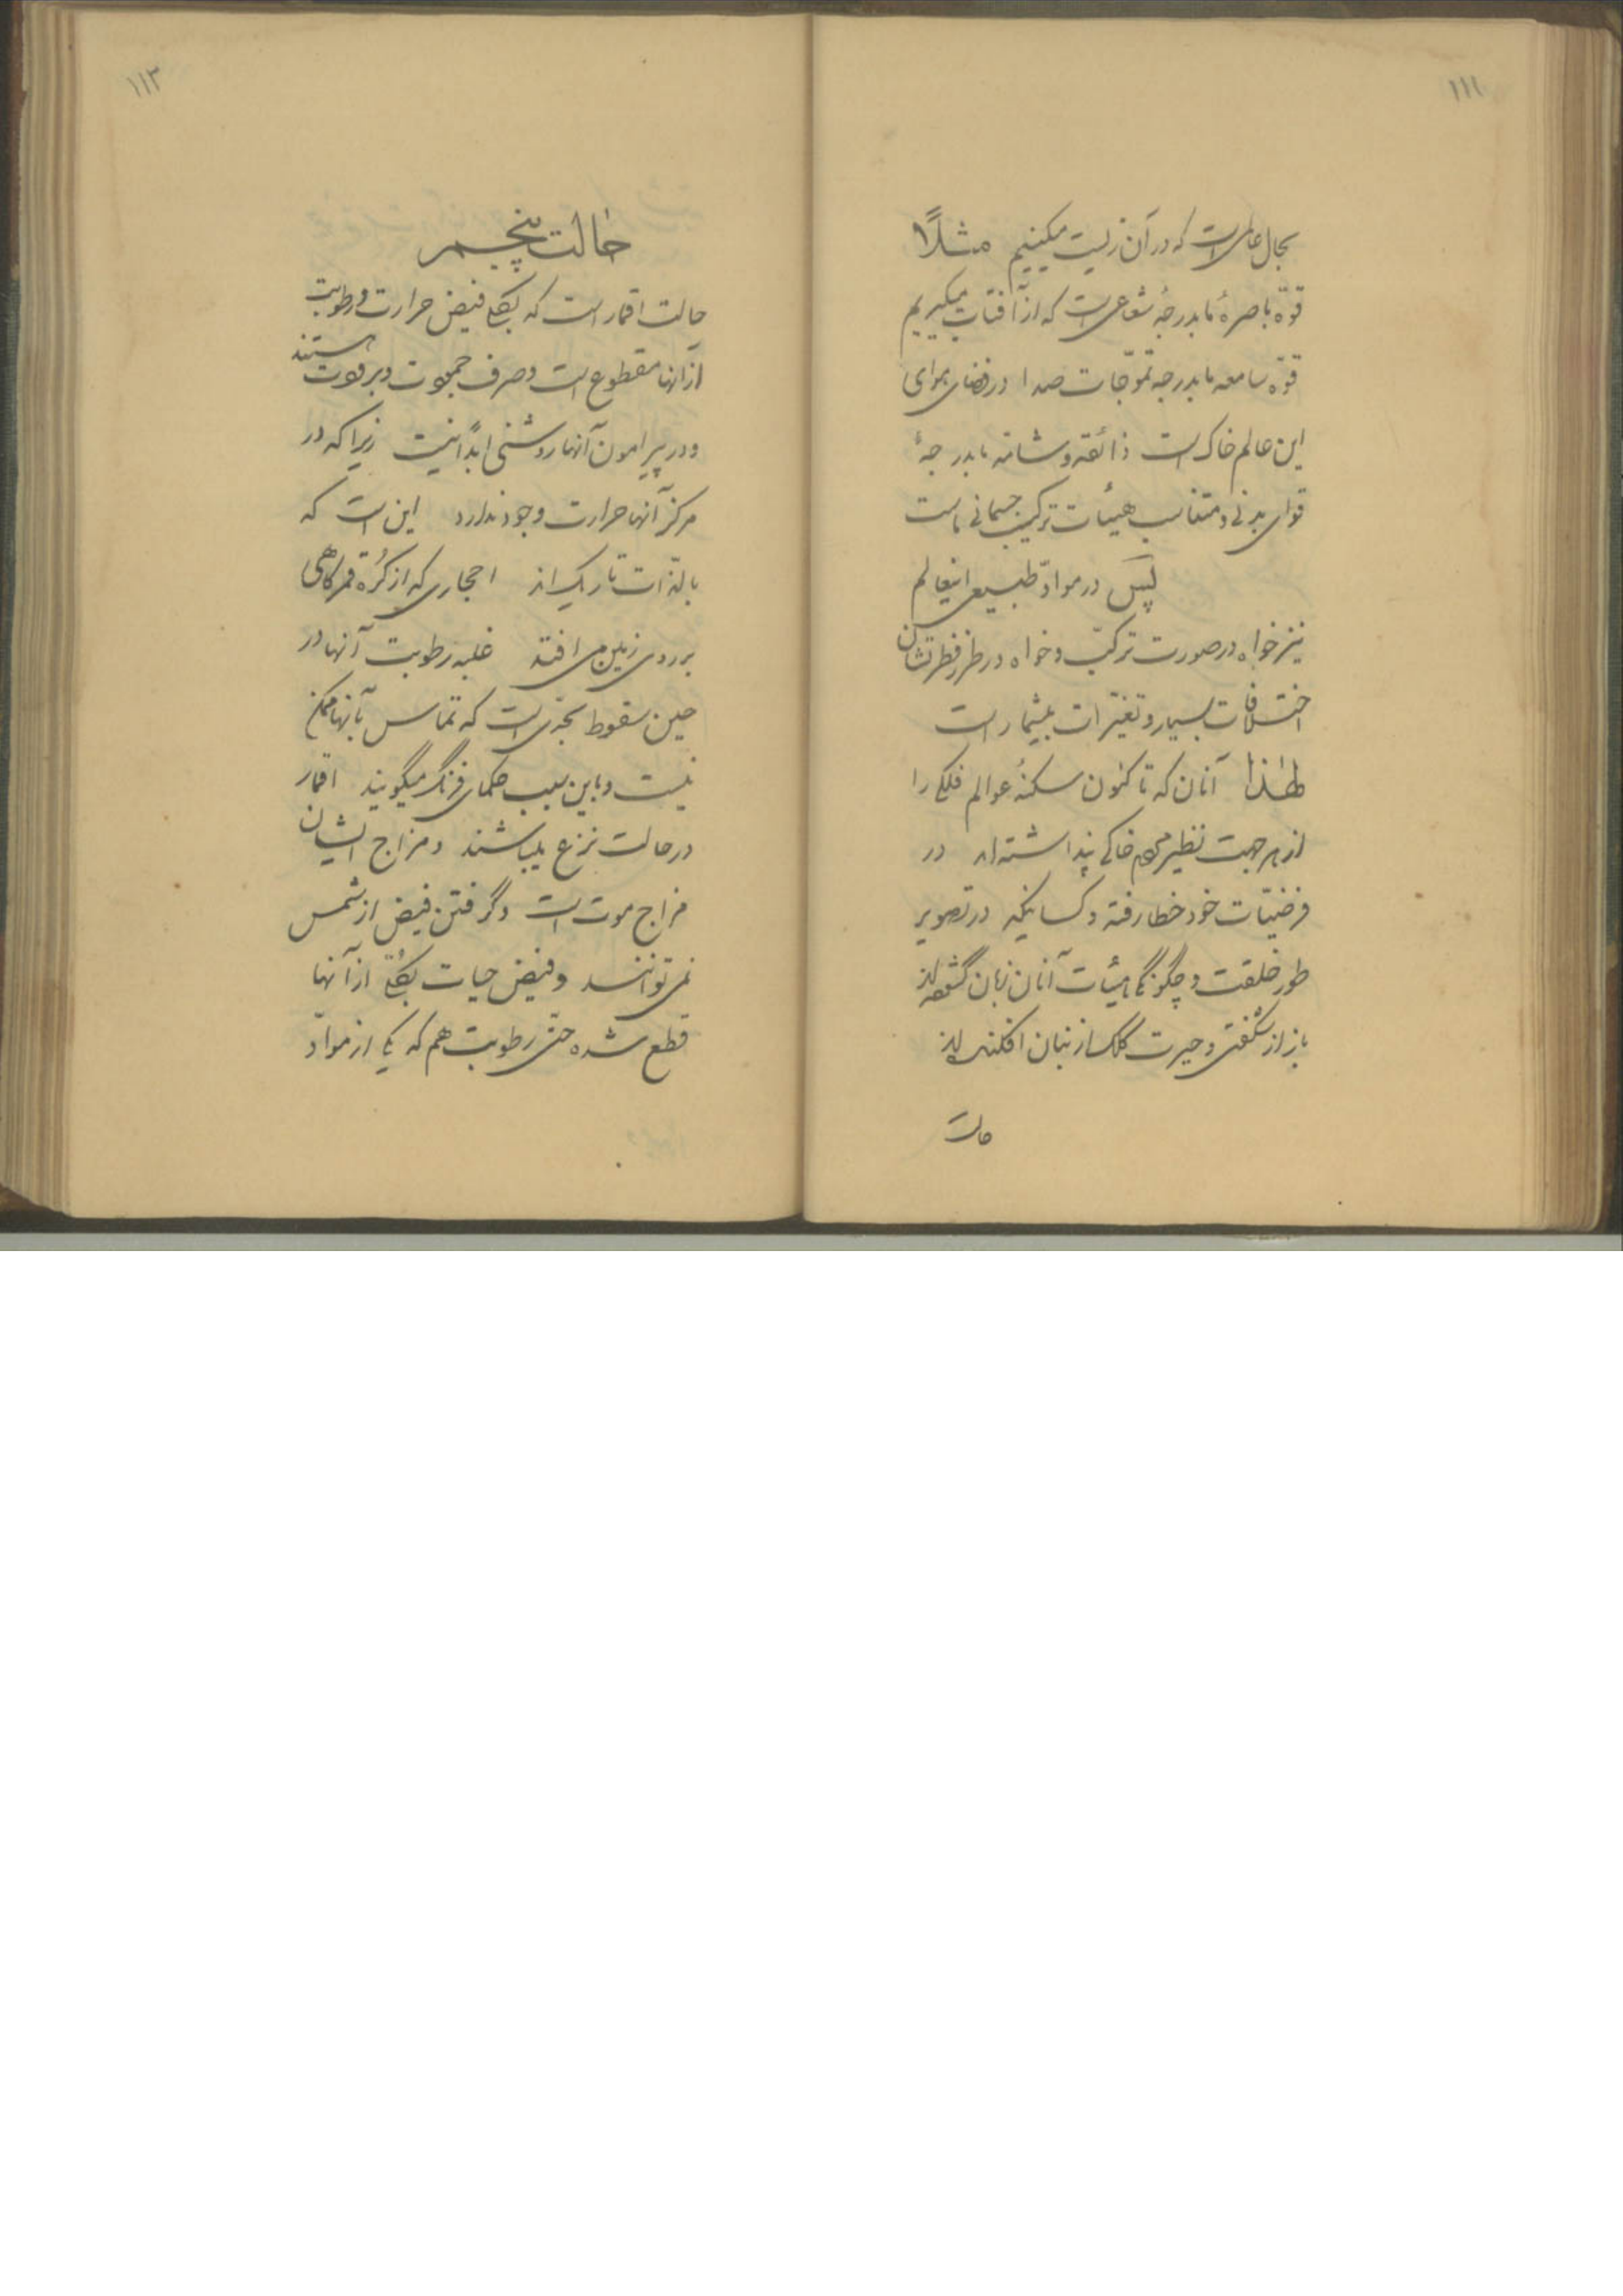 ۱۱۱
بحال عالمی است که در آن زیست میکنیم مثلاً
قوّه باصرهٔ ما بدرجهٔ شعاعی است که از آفتاب میگیریم
قوّه سامعه ما بدرجه تموّجات صدا در فضای هوای
این عالم خاک است ذائقه و شامّه ما بدرجهٔ
قوای بدنی و متناسب هیئات ترکیب جسمانی ماست
پس در موادّ طبیعی اینعالم
نیز خواه در صورت ترکیب و خواه در طرز فطرتشان
اختلافات بسیار و تغیّرات بیشمار است
لهٰذا آنان که تا کنون سکنهٔ عوالم فلکی را
از هر جهت نظیر مردم خاکی پنداشته‌اند در
فرضیّات خود خطا رفته و کسانیکه در تصویر
طور خلقت و چگونگی هیئات آنان زبان گشوده‌اند
باز از شگفتی و حیرت کلک از بنان افکنده‌اند
حالت
۱۱۲
حالت پنجم
حالت اقمار است که بکلّی فیض حرارت و رطوبت
از آنها مقطوع است و صرف جمودت و برودت هستند
و در پیرامون آنها روشنی ابداً نیست زیرا که در
مرکز آنها حرارت وجود ندارد این است که
بالذّات تاریک‌اند احجاری که از کُره قمر گاهی
بر روی زمین می افتد غلبه رطوبت آنها در
حین سقوط بحدّی است که تماس بآنها ممکن
نیست و باین سبب حکمای فرنگ میگویند اقمار
در حالت نزع میباشند و مزاج ایشان
مزاج موت است و گرفتن فیض از شمس
نمی توانند و فیض حیات بکلّی از آنها
قطع شده حتّی رطوبت هم که یکی از موادّ